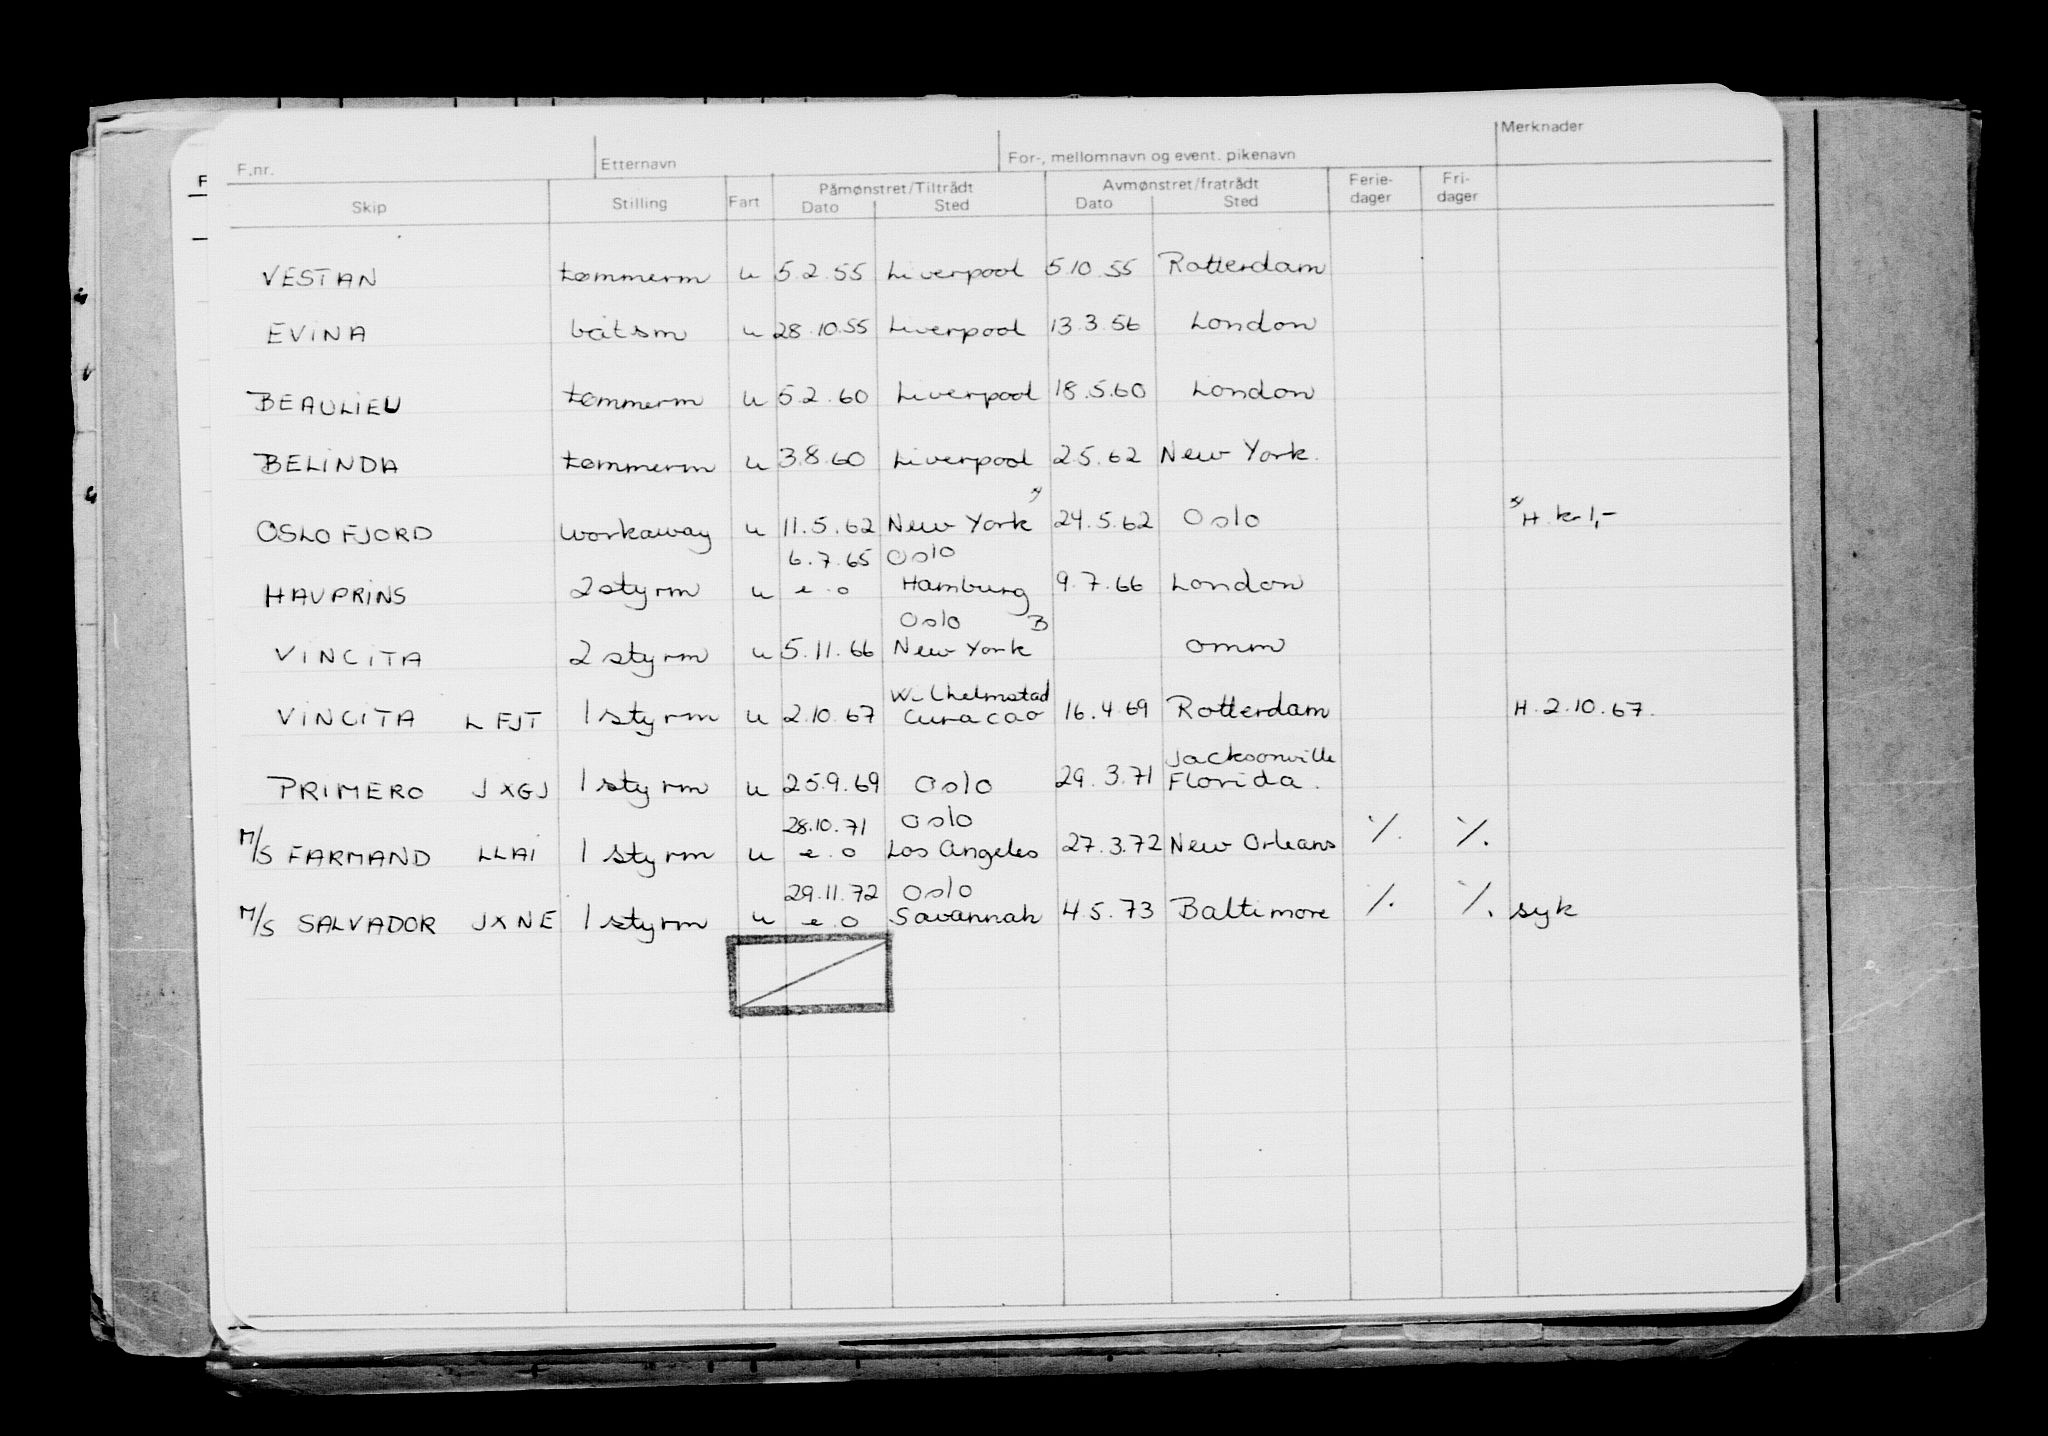 F.nr. Etternavn For-, mellomnavn og event. pikenavn Merknader
Skip Stilling Fart Påmønstret/Tiltrådt Dato Sted Avmønstret/fratrådt Dato Sted Ferie-dager Fri-dager
VESTAN tømmerm u 5.2.55 Liverpool 5.10.55 Rotterdam
EVINA båtsm u 28.10.55 Liverpool 13.3.56 London
BEAULIEU tømmerm u 5.2.60 Liverpool 18.5.60 London
BELINDA tømmerm u 3.8.60 Liverpool 2.5.62 New York.
OSLOFJORD workaway u 11.5.62 New York x) 24.5.62 Oslo x) H. kr 1,-
6.7.65 Oslo
HAVPRINS 2 styrm u e.o Hamburg 9.7.66 London
Oslo B
VINCITA 2 styrm u 5.11.66 New York omm
Wilhelmstad
VINCITA LFJT 1 styrm u 2.10.67 Curacao 16.4.69 Rotterdam H. 2.10.67.
Jacksonville
PRIMERO JXGJ 1 styrm u 25.9.69 Oslo 29.3.71 Florida.
28.10.71 Oslo
M/S FARMAND LLAI 1 styrm u e.o Los Angeles 27.3.72 New Orleans ./. ./.
29.11.72 Oslo
M/S SALVADOR JXNE 1 styrm u e.o Savannah 4.5.73 Baltimore ./. ./. syk